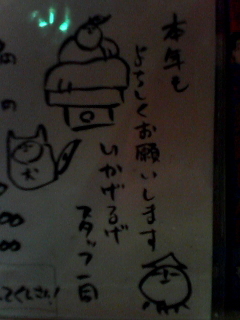 本年も
よろしくお願いします
いかげるげ
スタッフ一同
犬